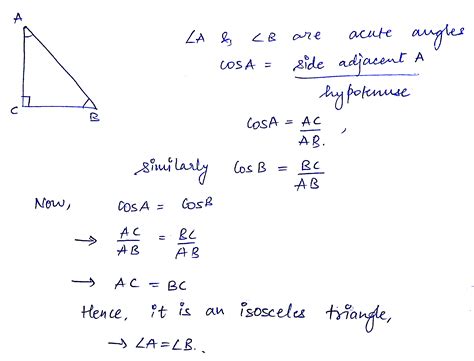 A
C
B
∠A & ∠B are acute angles
cosA = side adjacent A / hypotenuse
cosA = AC/AB. ,
Similarly cosB = BC/AB
Now, cosA = cosB
→ AC/AB = BC/AB
→ AC = BC
Hence, it is an isosceles triangle,
→ ∠A=∠B.